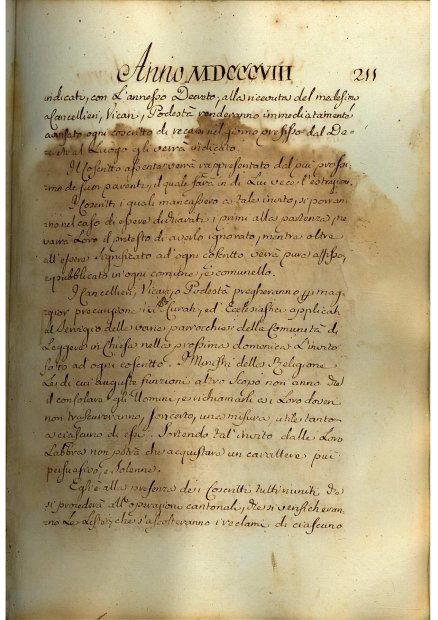 Anno MDCCCVIII 211
indicati, con l'annesso Decreto, alla ricevuta del medesimo
i Cancellieri, Vicari, Podestà renderanno immediatamente
avvisato ogni coscritto di recarsi nel giorno prefisso dal De-
creto al Luogo gli verrà indicato.
Il Coscritto assente verrà rappresentato dal più prossi-
mo de suoi parenti, il quale farà in di Lui vece l'estrazione.
I Coscritti i quali mancassero a tale invito, si porran-
no nel caso di essere dichiarati i primi alla partenza, ne
varrà Loro il pretesto di averlo ignorato, mentre oltre
all'essere significato ad ogni coscritto verrà pure affisso,
e pubblicato in ogni comune, e comunello.
I Cancellieri, Vicari, o Podestà pregheranno p mag-
gior precauzione i Curati, ed Ecclesiastici applicati
al servigio delle varie parrocchie della Comunità di
Leggere in Chiesa nella prossima domenica L'invito
fatto ad ogni coscritto. I Ministri della Religione
Le di cui auguste funzioni altro scopo non anno che
il consolare gli Uomini, e richiamarli ai Loro doveri
non trascureranno, per certo, una misura utile tanto
a ciascuno di essi. Sortendo tal'invito dalle Loro
Labbra non potrà che acquistare un carattere più
persuasivo, e solenne.
Egli è alla presenza dei Coscritti tutti riuniti che
si procederà all'operazioni cantonali, che si verificheran-
no le Liste, che s'ascolteranno i reclami di ciascuno